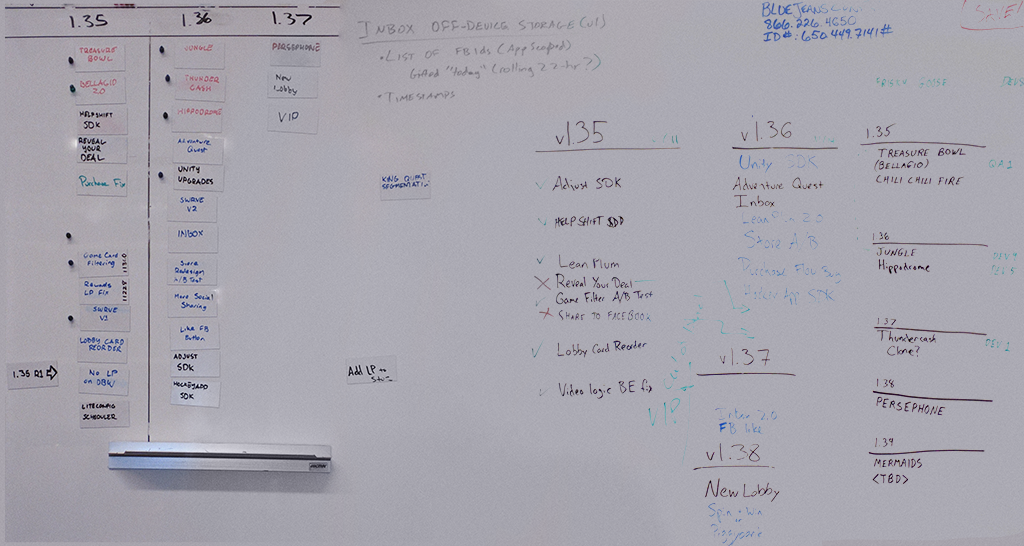 1.35
TREASURE
BOWL
BELLAGIO
2.0
HELPSHIFT
SDK
REVEAL
YOUR
DEAL
Purchase Fix
Game Card
Filtering
11310
Rewards
LP Fix
11228
SWRVE
V1
LOBBY CARD
REORDER
1.35 R1
No LP
on DBW
LITECONFIG
SCHEDULER
1.36
JUNGLE
THUNDER
CASH
HIPPODROME
Adventure
Quest
UNITY
UPGRADES
SWRVE
V2
INBOX
Store
Redesign
A/B Test
More Social
Sharing
Like FB
Button
ADJUST
SDK
HOCKEYAPP
SDK
1.37
PERSEPHONE
New
Lobby
VIP
INBOX OFF-DEVICE STORAGE (v1)
• LIST OF FB Ids (App Scoped)
Gifted "today" (rolling 22-hr?)
• TIMESTAMPS
KING QUEST
SEGMENTATION
Add LP
BLUEJEANS.COM
866.226.4650
ID#: 650.449.7141#
SAVE!
v1.35
Adjust SDK
HELPSHIFT SDD
Lean Plum
Reveal Your Deal
Game Filter A/B Test
SHARE TO FACEBOOK
Lobby Card Reorder
Video logic BE fix
VIP
v1.36
Unity SDK
Adventure Quest
Inbox
Lean 2.0
Store A/B
Purchase Flow Bug
SDK
v1.37
2.0
FB like
v1.38
New Lobby
Spin + Win
1.35
TREASURE BOWL
(BELLAGIO)
CHILI CHILI FIRE
1.36
JUNGLE
Hippodrome
DEV
1.37
Thundercash
Clone?
DEV 1
1.38
PERSEPHONE
1.39
MERMAIDS
<TBD>